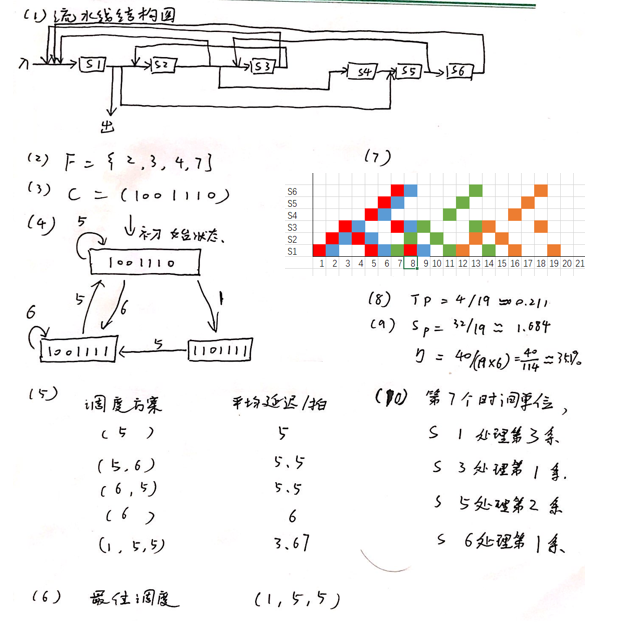 (1) 流水线结构图
入 S1 S2 S3 S4 S5 S6
出
(2) F = {2,3,4,7}
(3) C = (1001110)
(4) 初始状态、
5
1001110
5 6 1
6
1001111 5 1101111
(5) 调度方案 平均延迟/拍
(5) 5
(5,6) 5.5
(6,5) 5.5
(6) 6
(1,5,5) 3.67
(6) 最佳调度 (1,5,5)
(7)
S6
S5
S4
S3
S2
S1
1 2 3 4 5 6 7 8 9 10 11 12 13 14 15 16 17 18 19 20 21
(8) TP = 4/19 ≈ 0.211
(9) Sp = 32/19 ≈ 1.684
η = 40/(19×6) = 40/114 ≈ 35.1%
(10) 第7个时间单位,
S 1处理第3条
S 3处理第1条.
S 5处理第2条
S 6处理第1条、